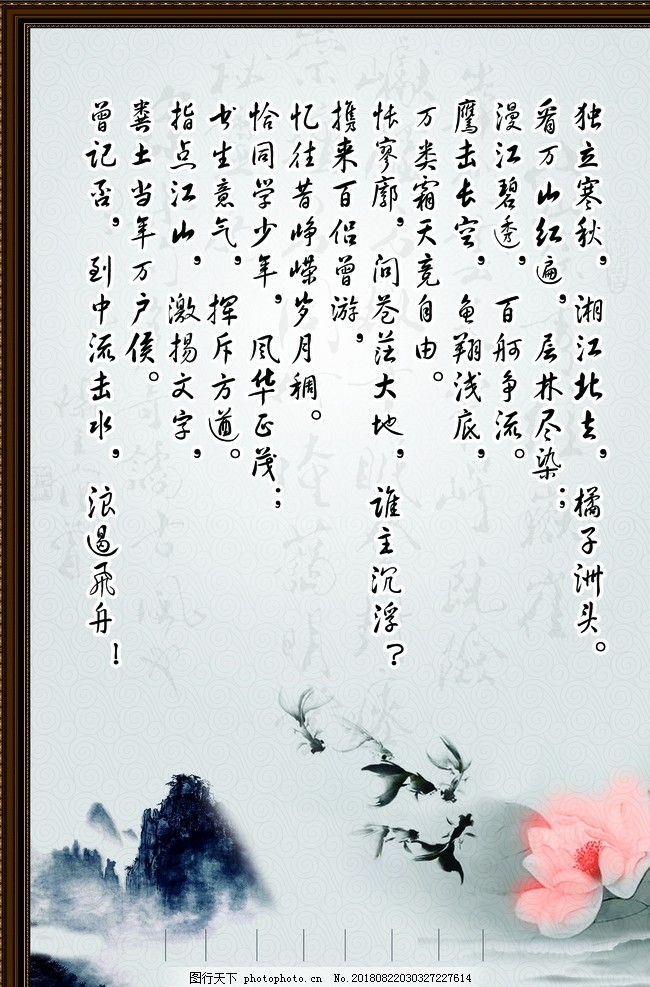 独立寒秋，湘江北去，橘子洲头。
看万山红遍，层林尽染；
漫江碧透，百舸争流。
鹰击长空，鱼翔浅底，
万类霜天竞自由。
怅寥廓，问苍茫大地，谁主沉浮？
携来百侣曾游，
忆往昔峥嵘岁月稠。
恰同学少年，风华正茂；
书生意气，挥斥方遒。
指点江山，激揚文字，
粪土当年万户侯。
曾记否，到中流击水，浪遏飞舟！
图行天下 photophoto.cn No.20180822030327227614